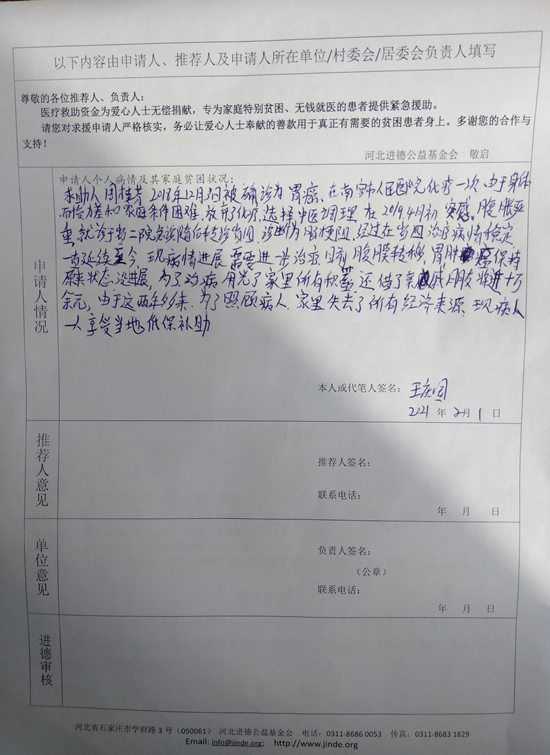 以下内容由申请人、推荐人及申请人所在单位/村委会/居委会负责人填写
尊敬的各位推荐人、负责人:
医疗救助资金为爱心人士无偿捐献,专为家庭特别贫困、无钱就医的患者提供紧急援助。
请您对求援申请人严格核实,务必让爱心人士奉献的善款用于真正有需要的贫困患者身上。多谢您的合作与
支持!
河北进德公益基金会 敬启
申请人个人病情及其家庭贫困状况:
求助人 2018年12月 被确诊为胃癌、在南宫市人民医院化疗一次、由于身体
而恰差和家庭条件困难,放弃化疗,选择中医调理 在2019年4月初 突感、腹胀严
重,就诊于 二院 诊断为 梗阻,经过在 治疗病情稳定
一直延续至今,现病情进展,需要进一步治疗,目前 腹膜转移,胃肿 保持
原来状态 没进展,为了治病用光了家里所有积蓄还借了亲 朋友将进十万
余元,由于这两年多来、为了照顾病人、家里失去了所有经济来源,现病人
一人享受当地低保补助
申请人情况
本人或代笔人签名:
2021 年 2月 1 日
推荐人意见
推荐人签名:
联系电话:
年 月 日
单位意见
负责人签名:
(公章)
联系电话:
年 月 日
进德审核
河北省石家庄市学府路 3 号(050061) 河北进德公益基金会 电话:0311-8686 0053 传真:0311-8683 1829
Email: info@jinde.org; http://www.jinde.org